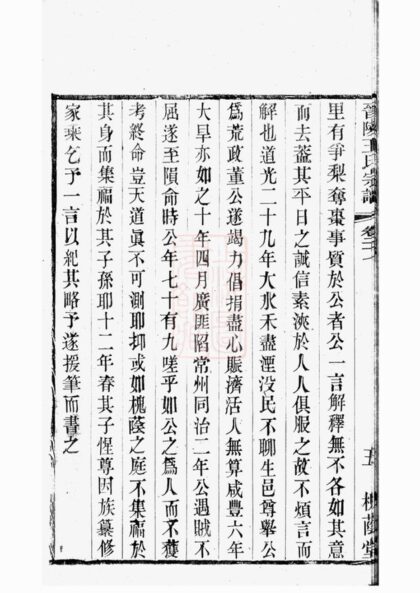 晉陵王氏宗譜
卷二
五
槐蔭堂
里有爭梨奪棗事質於公者公一言解釋無不各如其意
而去蓋其平日之誠信素浹於人人俱服之故不煩言而
解也道光二十九年大水禾盡湮没民不聊生邑尊舉公
爲荒政董公遂竭力倡捐盡心賑濟活人無算咸豐六年
大旱亦如之十年四月廣匪陷常州同治二年公遇賊不
屈遂至隕命時公年七十有九嗟乎如公之爲人而不獲
考終命豈天道眞不可測耶抑或如槐蔭之庭不集福於
其身而集福於其子孫耶十二年春其子惺尊因族纂修
家乘乞予一言以紀其略予遂援筆而書之